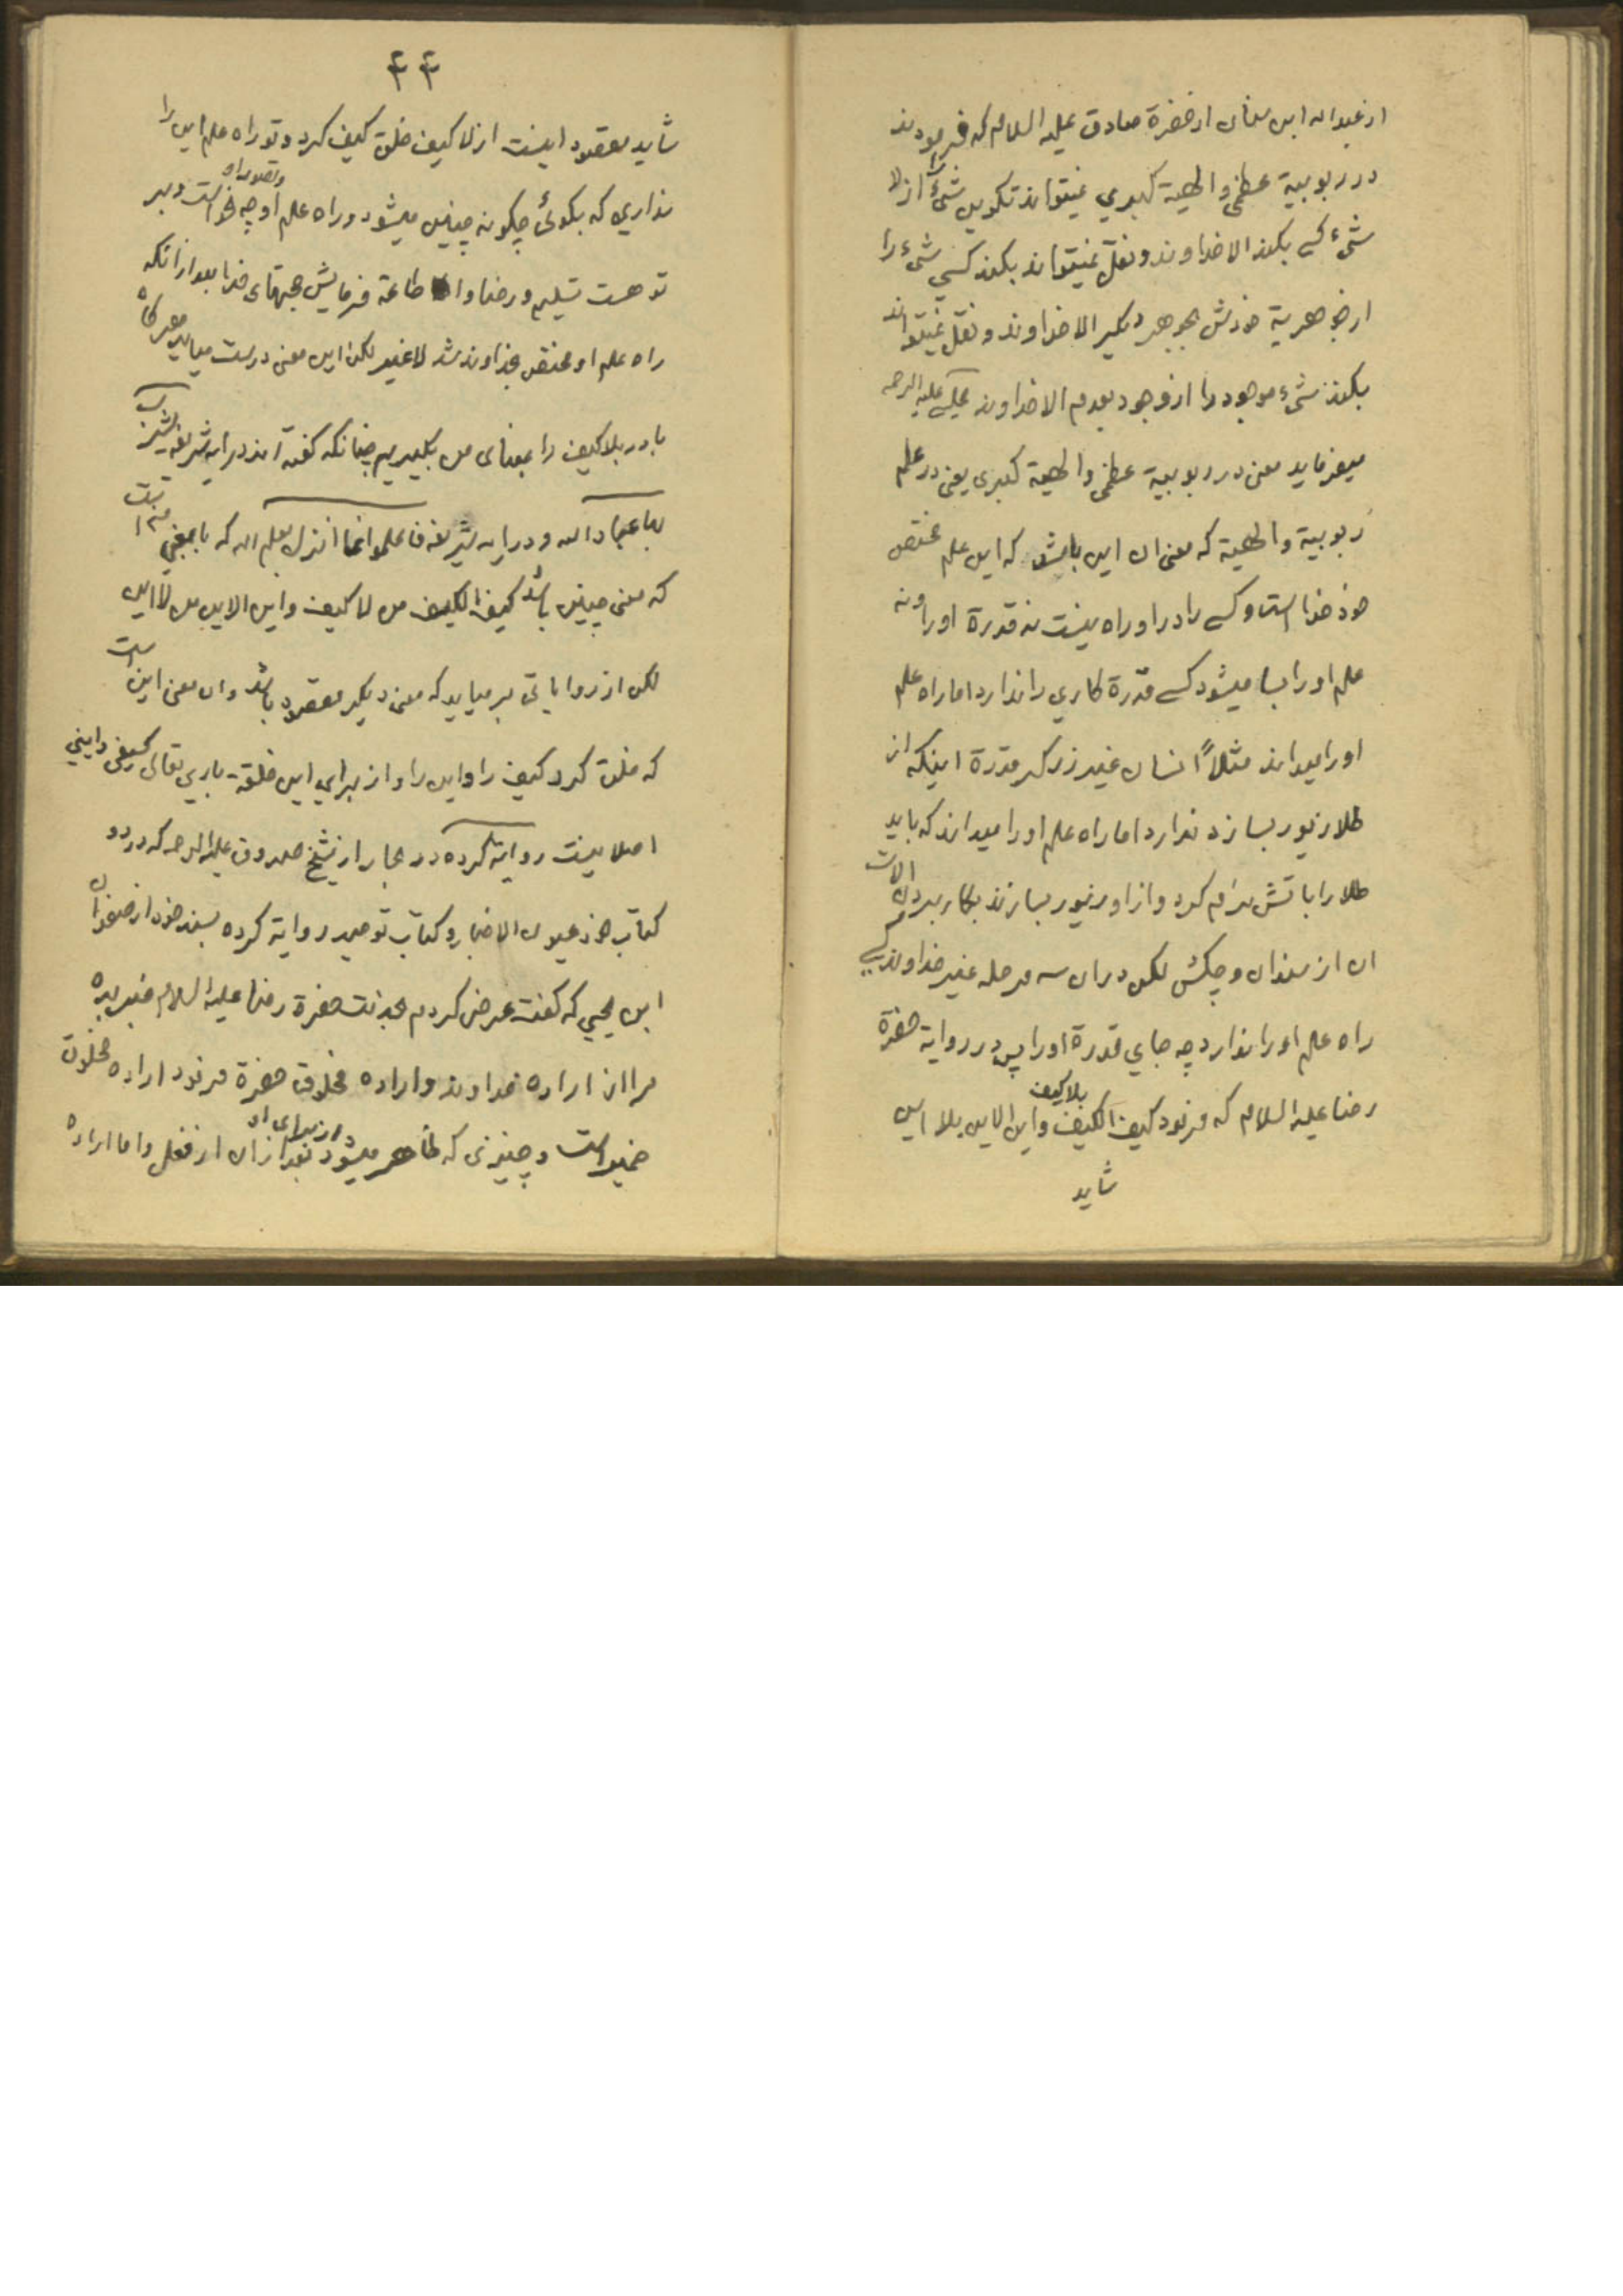 از عبداله ابن سنان از حضرة صادق علیه السلام که فرمودند
در ربوبیة عظمی و الهیة کبری نمیتواند تکوین شیٔ را از لا
شیء کسی بکند الا خداوند و نقل نمیتواند بکند کسی شیء را
از جوهریة خودش بجوهر دیگیر الا خداوند و نقل نمیتواند
بکند شیء موجود را از وجود بعدم الا خداوند علیه الرحمه
میفرماید معنی در ربوبیة عظمی و الهیة کبری یعنی در علم
ربوبیة و الهیة که معنی ان این باشد که این علم مختص
خود خدا است و کسی را در او راه نیست نه قدرة او را و نه
علم او را بسا میشود کسی قدرة کاری را ندارد اما راه علم
او را میداند مثلاً انسان غیر زرکر قدرة اینکه از
طلا زیور بسازد ندارد اما راه علم او را میداند که باید
طلا را باتش نرم کرد و از او زیور بسازند بکار بردن الات
ان از سندان و چکش لکن در ان سه مرحله غیر خداوند کسی
راه علم او را ندارد چه جای قدرة او را پس در روایة حضرة
رضا علیه السلام که فرمود کیف الکیف بلا کیف و این الاین بلا این
شاید
۴۴
شاید مقصود اینست از لا کیف خلق کیف کرد و تو راه علم این را
نداری که بکوئی چکونه چنین میشود و راه علم او و تصور او چه نحو است و بر
تو هست تسلیم و رضا و اطاعة فرمایش حجتهای خدا بعد از انکه
راه علم او مختص بخداوند شد لا غیر لکن این معنی درست میاید هر کاه
باء در بلا کیف را بمعنای من بکیریم چنانکه کفته اند در ایه شریفه یشرب
بها عباد الله و در ایه شریفه فاعلموا انما انزل بعلم الله که با بمعنی من است
که معنی چنین باشد کیف الکیف من لا کیف و این الاین من لا این
لکن از روایاتی بر میاید که معنی دیکر مقصود باشد و ان معنی این است
که خلق کرد کیف را و این را و از برای این خلقة باری تعالی کیفی و اینی
اصلا نیست روایة کرده در بحار از شیخ صدوق علیه الرحمه که در دو
کتاب خود عیون الاخبار و کتاب توحید روایة کرده بسند خود از صفوان
ابن یحیی که کفت عرض کردم بخدمت حضرة رضا علیه السلام خبر بده
مرا از اراده خداوند و اراده مخلوق حضرة فرمود اراده مخلوق
ضمیر است و چیزی که ظاهر میشود از برای او بعد از ان از فعل و اما اراده